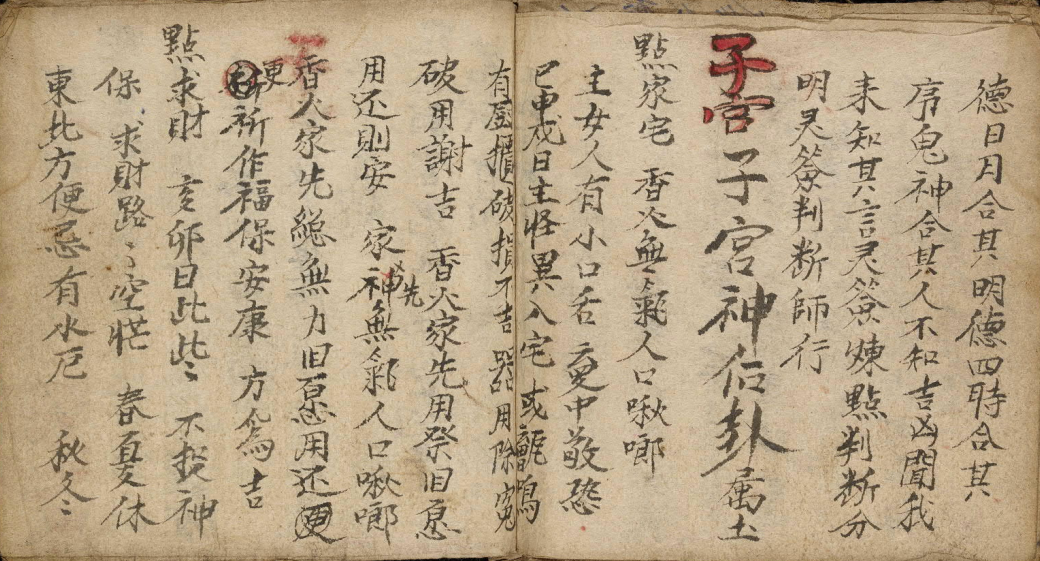 德日月合其明德四時合其
序鬼神合其人不知吉凶聞我
未知其言灵簽煉點判断分
明灵簽判断師行
子宮子宮神伝卦属土
點家宅 香火無氣人口啾唧
主女人有小口舌 夏中敬恐
巳申戌日主怪異入宅或甑鳴
有屋攢破損不吉器用除冤
破用謝吉 香火家先用祭旧愿
用还則安 家神先無氣人口啾唧
香火家先総無力旧愿用还更
便祈作福保安康 方為吉
點求財 亥卯日此些〻 不投神
保〻求財路〻空忙 春夏休
東北方便忌有水厄 秋冬〻